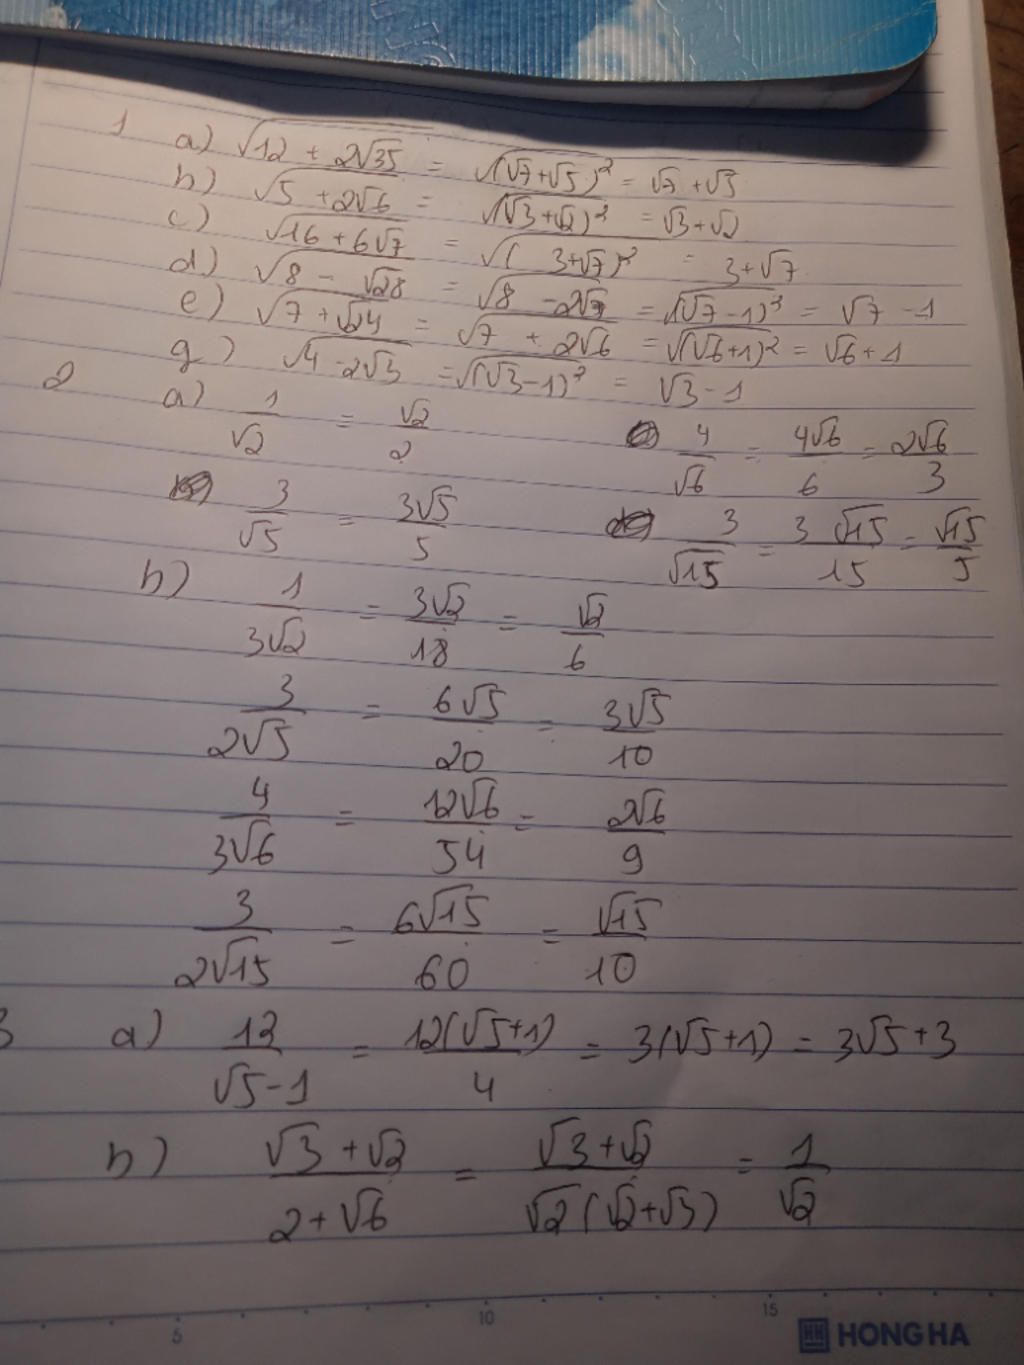 1 a) √(12 + 2√35) = √((√7+√5)²) = √7 + √5
b) √(5 + 2√6) = √((√3+√2)²) = √3+√2
c) √(16 + 6√7) = √((3+√7)²) = 3+√7
d) √(8 - √28) = √(8 - 2√7) = √((√7-1)²) = √7 - 1
e) √(7 + √24) = √(7 + 2√6) = √((√6+1)²) = √6 + 1
g) √(4 - 2√3) = √((√3-1)²) = √3 - 1
2 a) 1/√2 = √2/2 4/√6 = 4√6/6 = 2√6/3
3/√5 = 3√5/5 3/√15 = 3√15/15 = √15/5
b) 1/(3√2) = 3√2/18 = √2/6
3/(2√5) = 6√5/20 = 3√5/10
4/(3√6) = 12√6/54 = 2√6/9
3/(2√15) = 6√15/60 = √15/10
3 a) 12/(√5-1) = 12(√5+1)/4 = 3(√5+1) = 3√5+3
b) (√3+√2)/(2+√6) = (√3+√2)/(√2(√2+√3)) = 1/√2
5 10 15
HH HONG HA